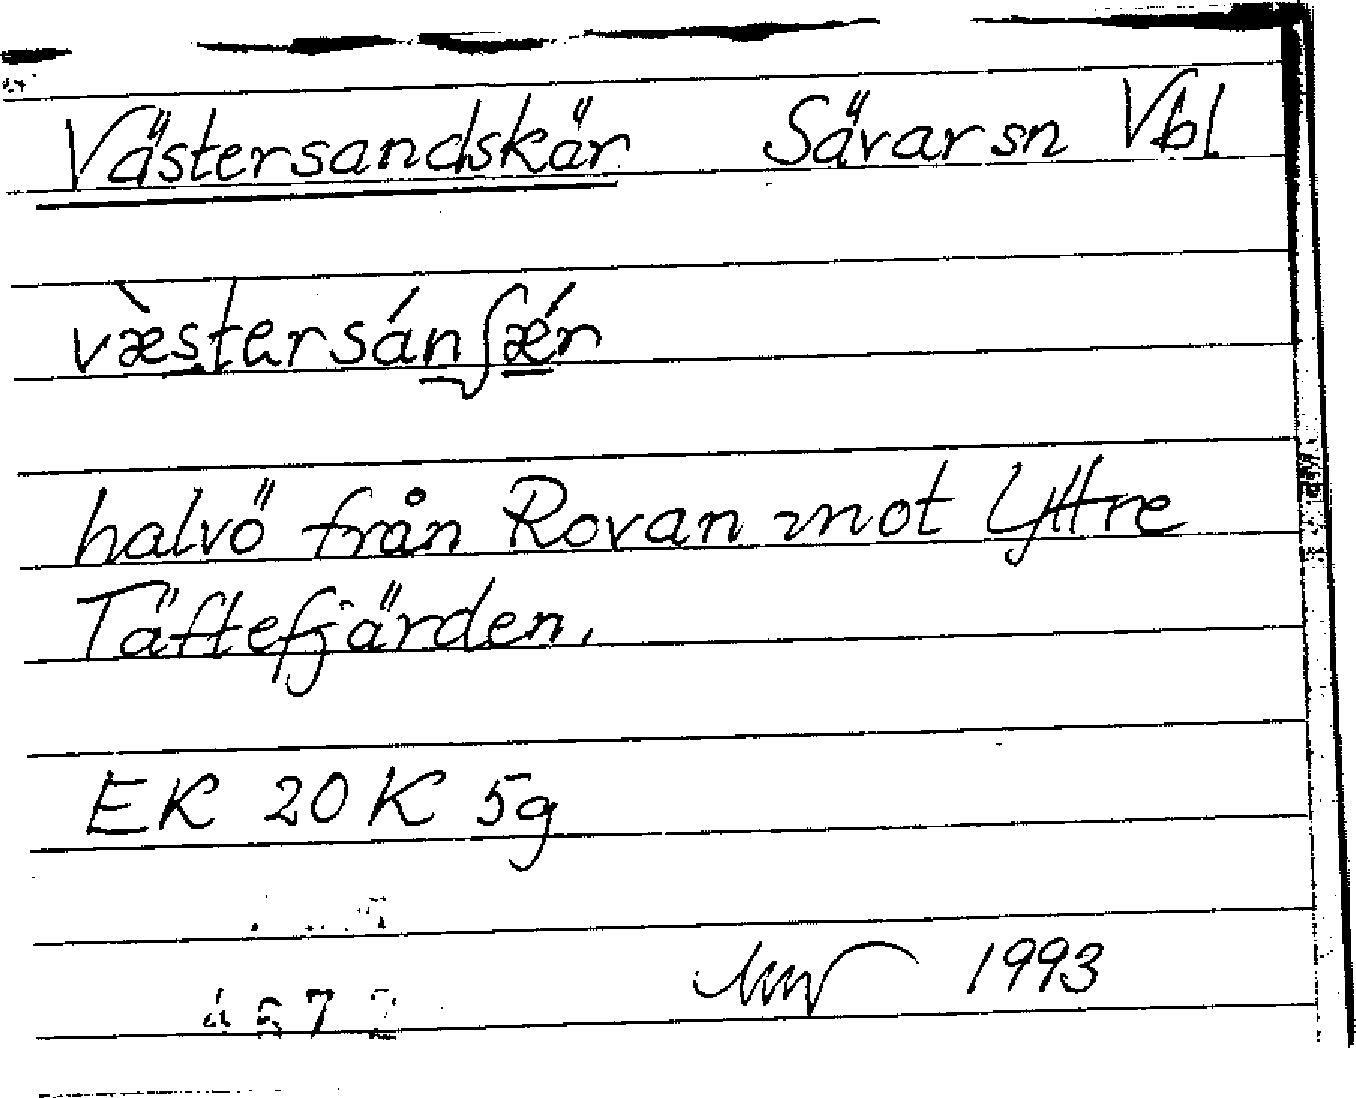 Västersandskär Sävar sn Vbl
væ̀stersánʃǽr
halvö från Rovan mot Yttre
Täftefjärden.
EK 20 K 5g
1993